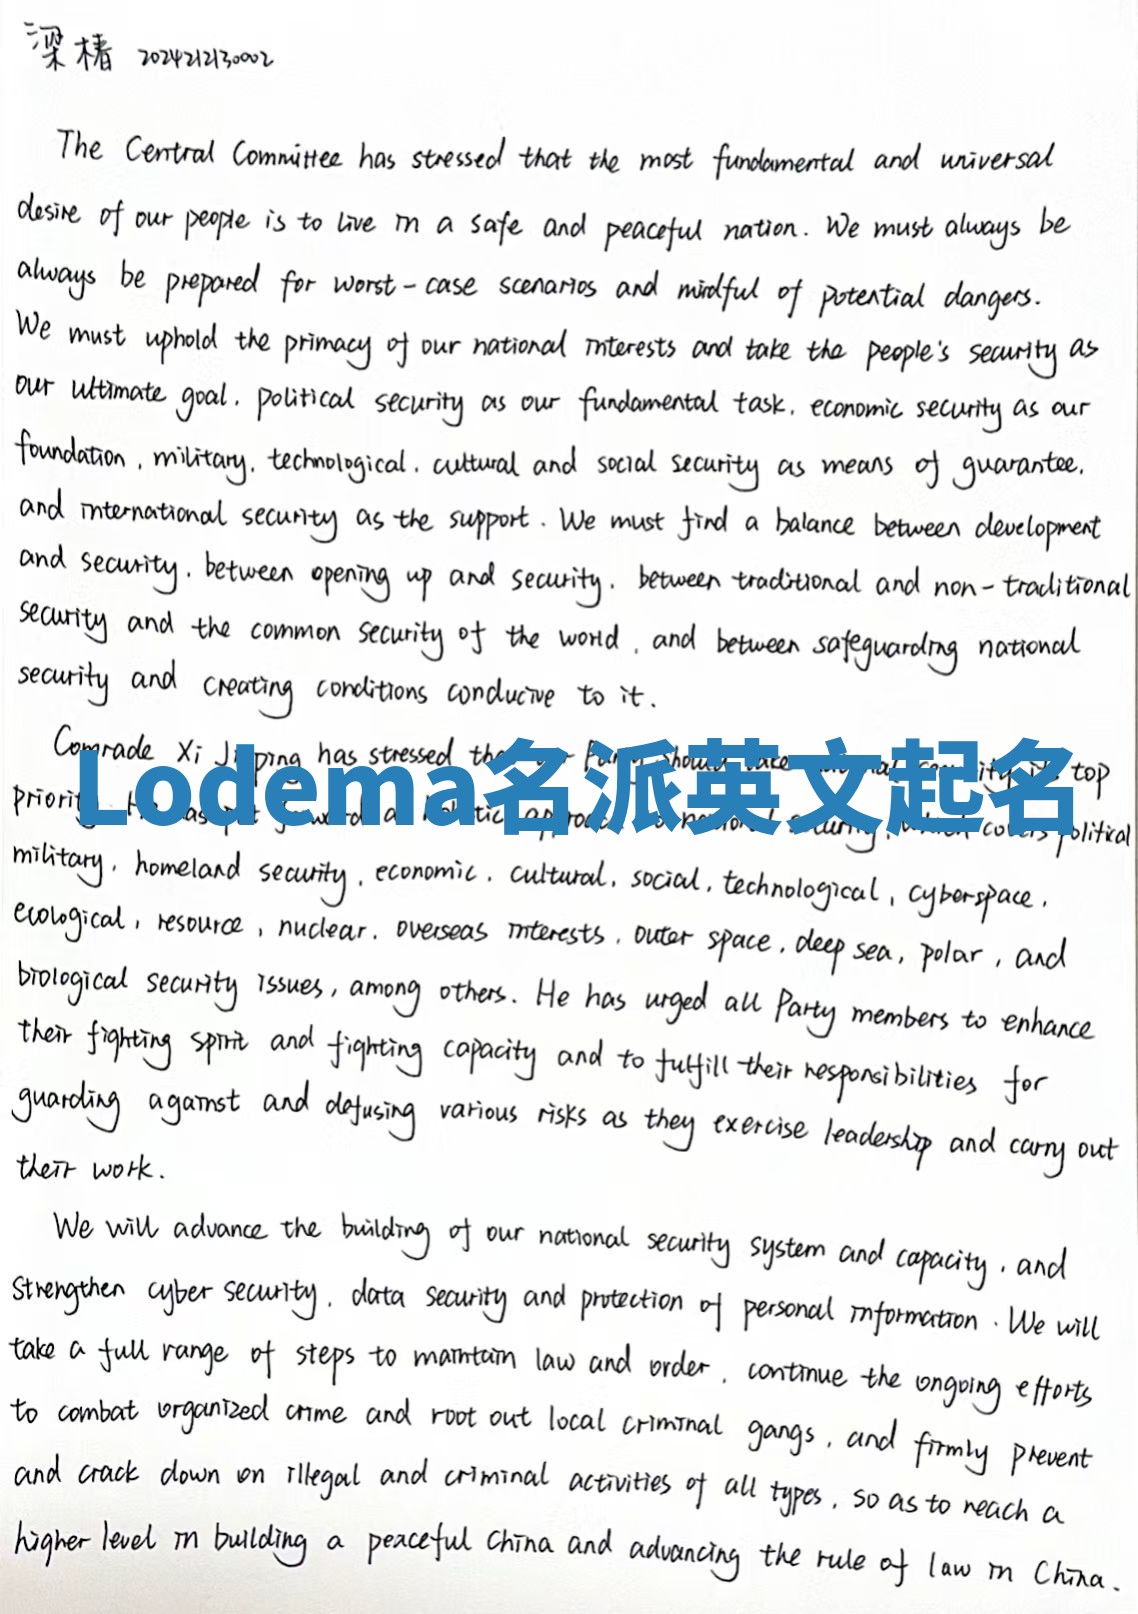 梁椿 2024212130002
The Central Committee has stressed that the most fundamental and universal
desire of our people is to live in a safe and peaceful nation. We must always be
always be prepared for worst-case scenarios and mindful of potential dangers.
We must uphold the primacy of our national interests and take the people's security as
our ultimate goal, political security as our fundamental task, economic security as our
foundation, military, technological, cultural and social security as means of guarantee,
and international security as the support. We must find a balance between development
and security, between opening up and security, between traditional and non-traditional
security and the common security of the world, and between safeguarding national
security and creating conditions conducive to it.
Comrade Xi Jinping has stressed top
Lodema名派英文起名
priority. political
military, homeland security, economic, cultural, social, technological, cyberspace,
ecological, resource, nuclear, overseas interests, outer space, deep sea, polar, and
biological security issues, among others. He has urged all Party members to enhance
their fighting spirit and fighting capacity and to fulfill their responsibilities for
guarding against and defusing various risks as they exercise leadership and carry out
their work.
We will advance the building of our national security system and capacity, and
strengthen cyber security, data security and protection of personal information. We will
take a full range of steps to maintain law and order, continue the ongoing efforts
to combat organized crime and root out local criminal gangs, and firmly prevent
and crack down on illegal and criminal activities of all types, so as to reach a
higher level in building a peaceful China and advancing the rule of law in China.